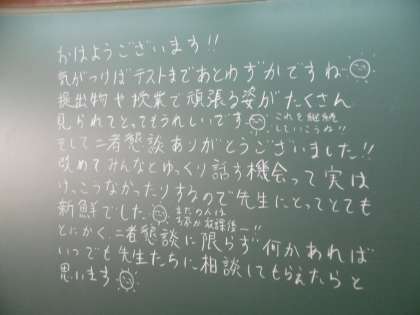 おはようございます!!
気がつけばテストまであとわずかですね
提出物や授業で頑張る姿がたくさん
見られてとってもうれしいです これを継続
していこうね!!
そして二者懇談ありがとうございました!!
改めてみんなとゆっくり話す機会って実は
けっこうなかったりするので先生にとってとても
新鮮でした まだの人は
放課後ー!!
とにかく、二者懇談に限らず何かあれば
いつでも先生たちに相談してもらえたらと
思います